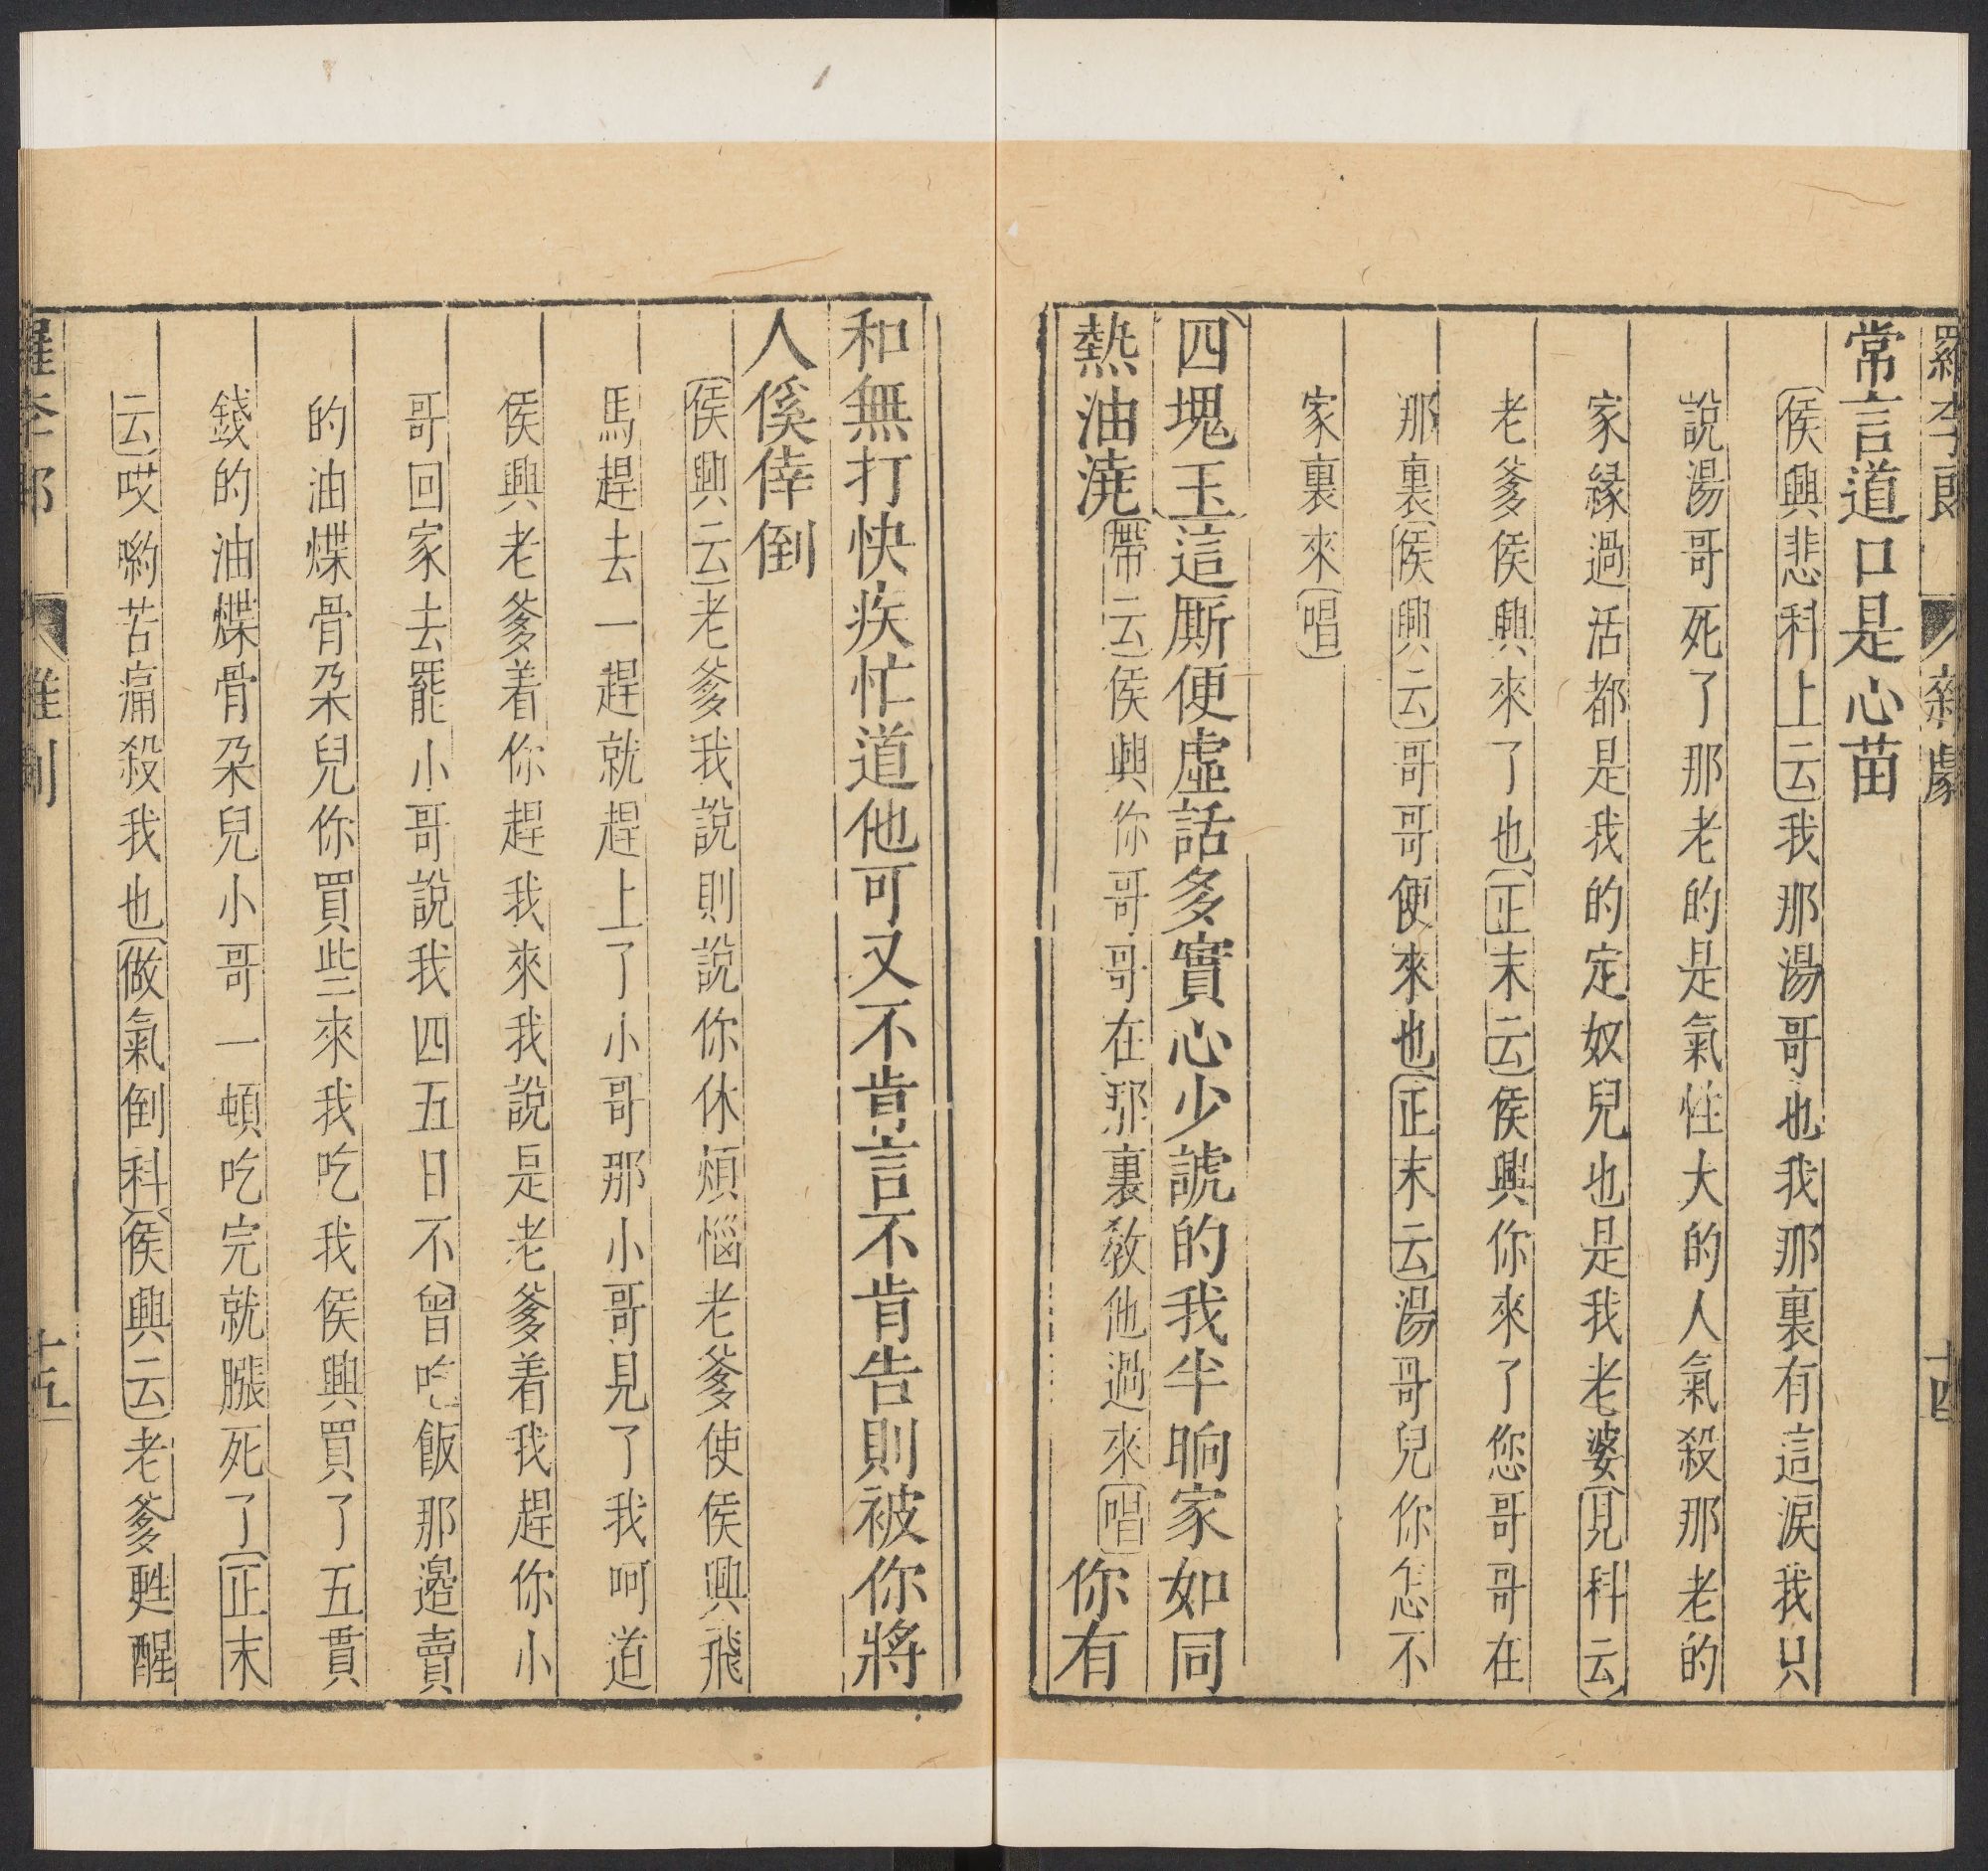 羅李郎 雜劇 十四
常言道口是心苗
侯興悲科上云我那湯哥也我那裏有這淚我只
說湯哥死了那老的是氣性大的人氣殺那老的
家緣過活都是我的定奴兒也是我老婆見科云
老爹侯興來了也正末云侯興你來了您哥哥在
那裏侯興云哥哥便來也正末云湯哥兒你怎不
家裏來唱
四塊玉這厮便虛話多實心少諕的我半晌家如同
熱油澆帶云侯興你哥哥在那裏教他過來唱你有
和無打快疾忙道他可又不肯言不肯告則被你將
人傒倖倒
侯興云老爹我說則說你休煩惱老爹使侯興飛
馬趕去一趕就趕上了小哥那小哥見了我呵道
侯興老爹着你趕我來我說是老爹着我趕你小
哥回家去罷小哥說我四五日不曾吃飯那邉賣
的油煠骨朶兒你買些來我吃我侯興買了五貫
錢的油煠骨朶兒小哥一頓吃完就脹死了正末
云哎喲苦痛殺我也做氣倒科侯興云老爹甦醒
羅李郎 雜劇 十五